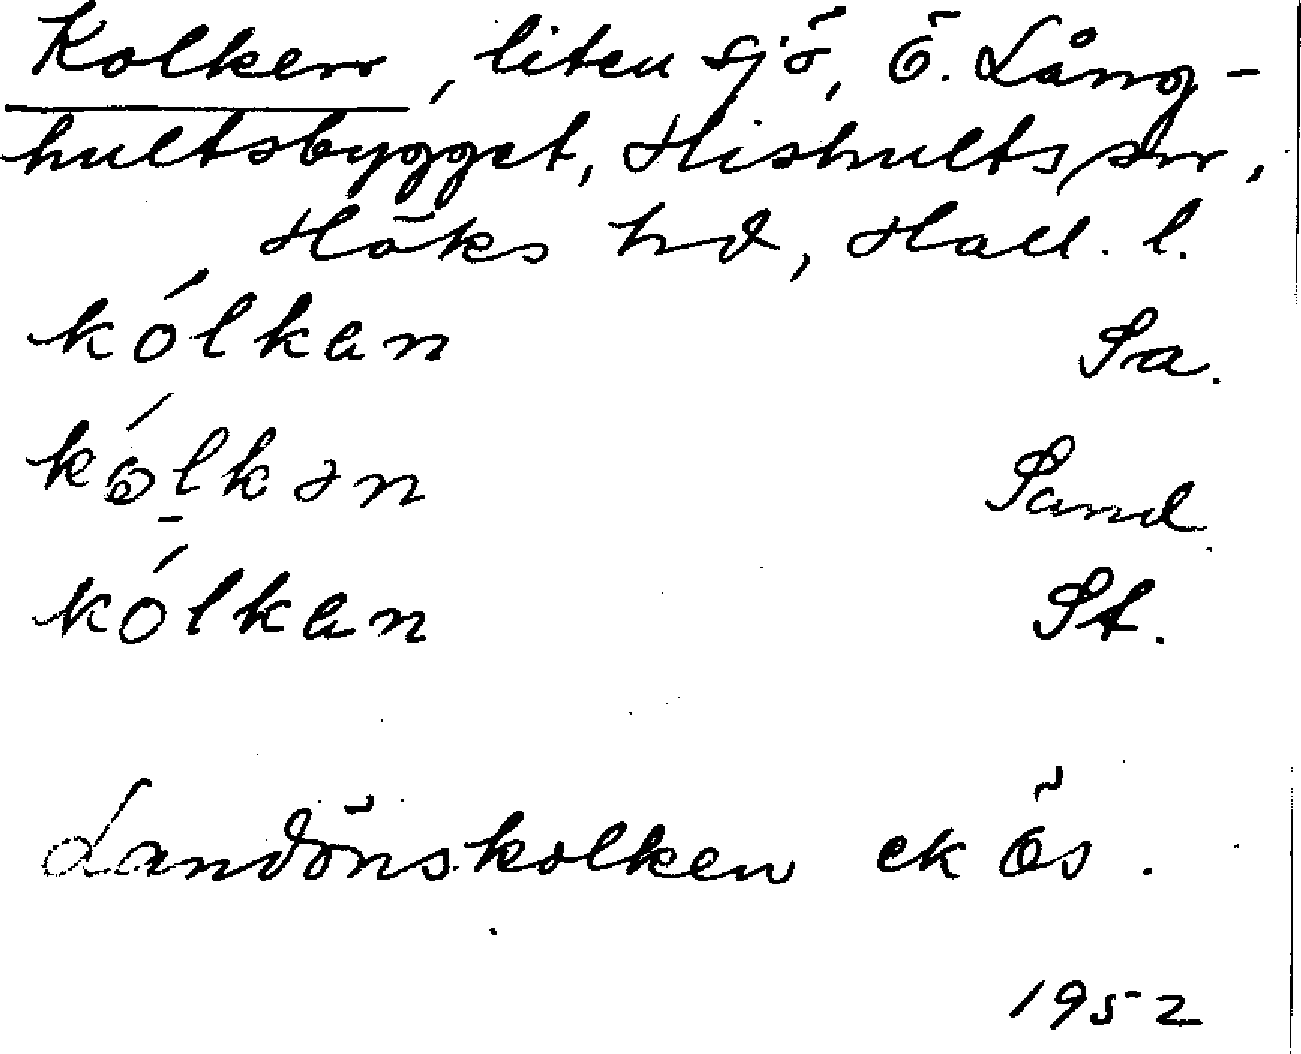 Kolken, liten sjö, Ö. Lång-
hultsbygget, Hishults sn,
Höks hd, Hall. l.
kólkan Sa.
kó̱lkən Sand.
kólkan St.
Landönskolken ek Ös.
1952